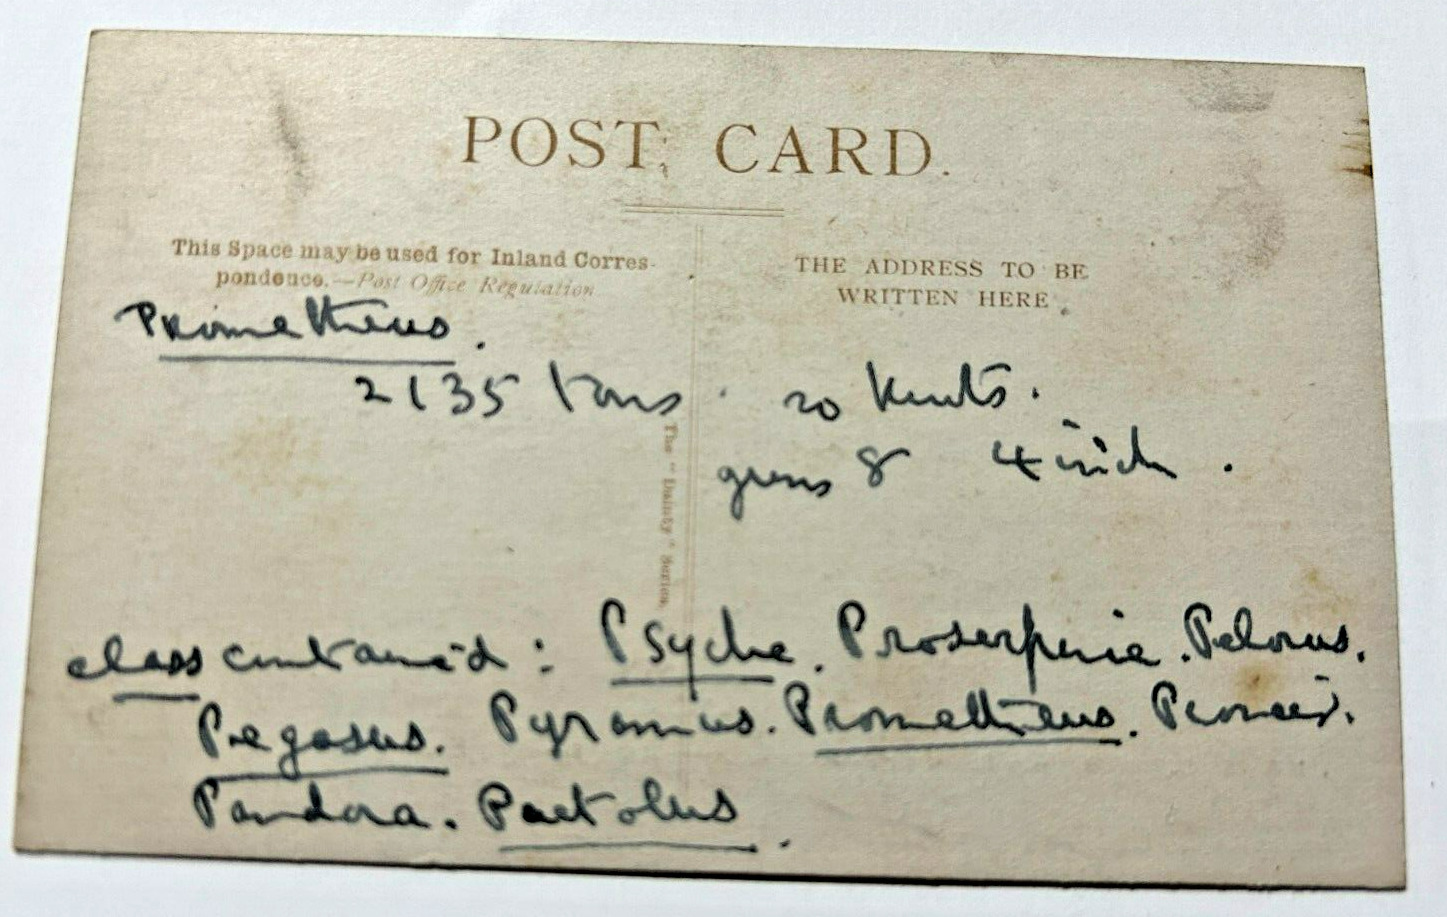 POST CARD.
This Space may be used for Inland Corres-
pondence.—Post Office Regulation
THE ADDRESS TO BE
WRITTEN HERE.
Prometheus.
2135 tons. 20 Knots.
guns 8 4 inch.
The "Dainty" Series.
class contained: Psyche. Proserpine. Pelorus.
Pegasus. Pyramus. Prometheus. Pioneer.
Pandora. Pactolus.